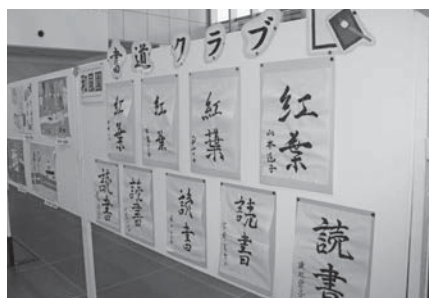 書道クラブ
紅葉
紅葉
紅葉
紅葉
読書
読書
読書
読書
読書